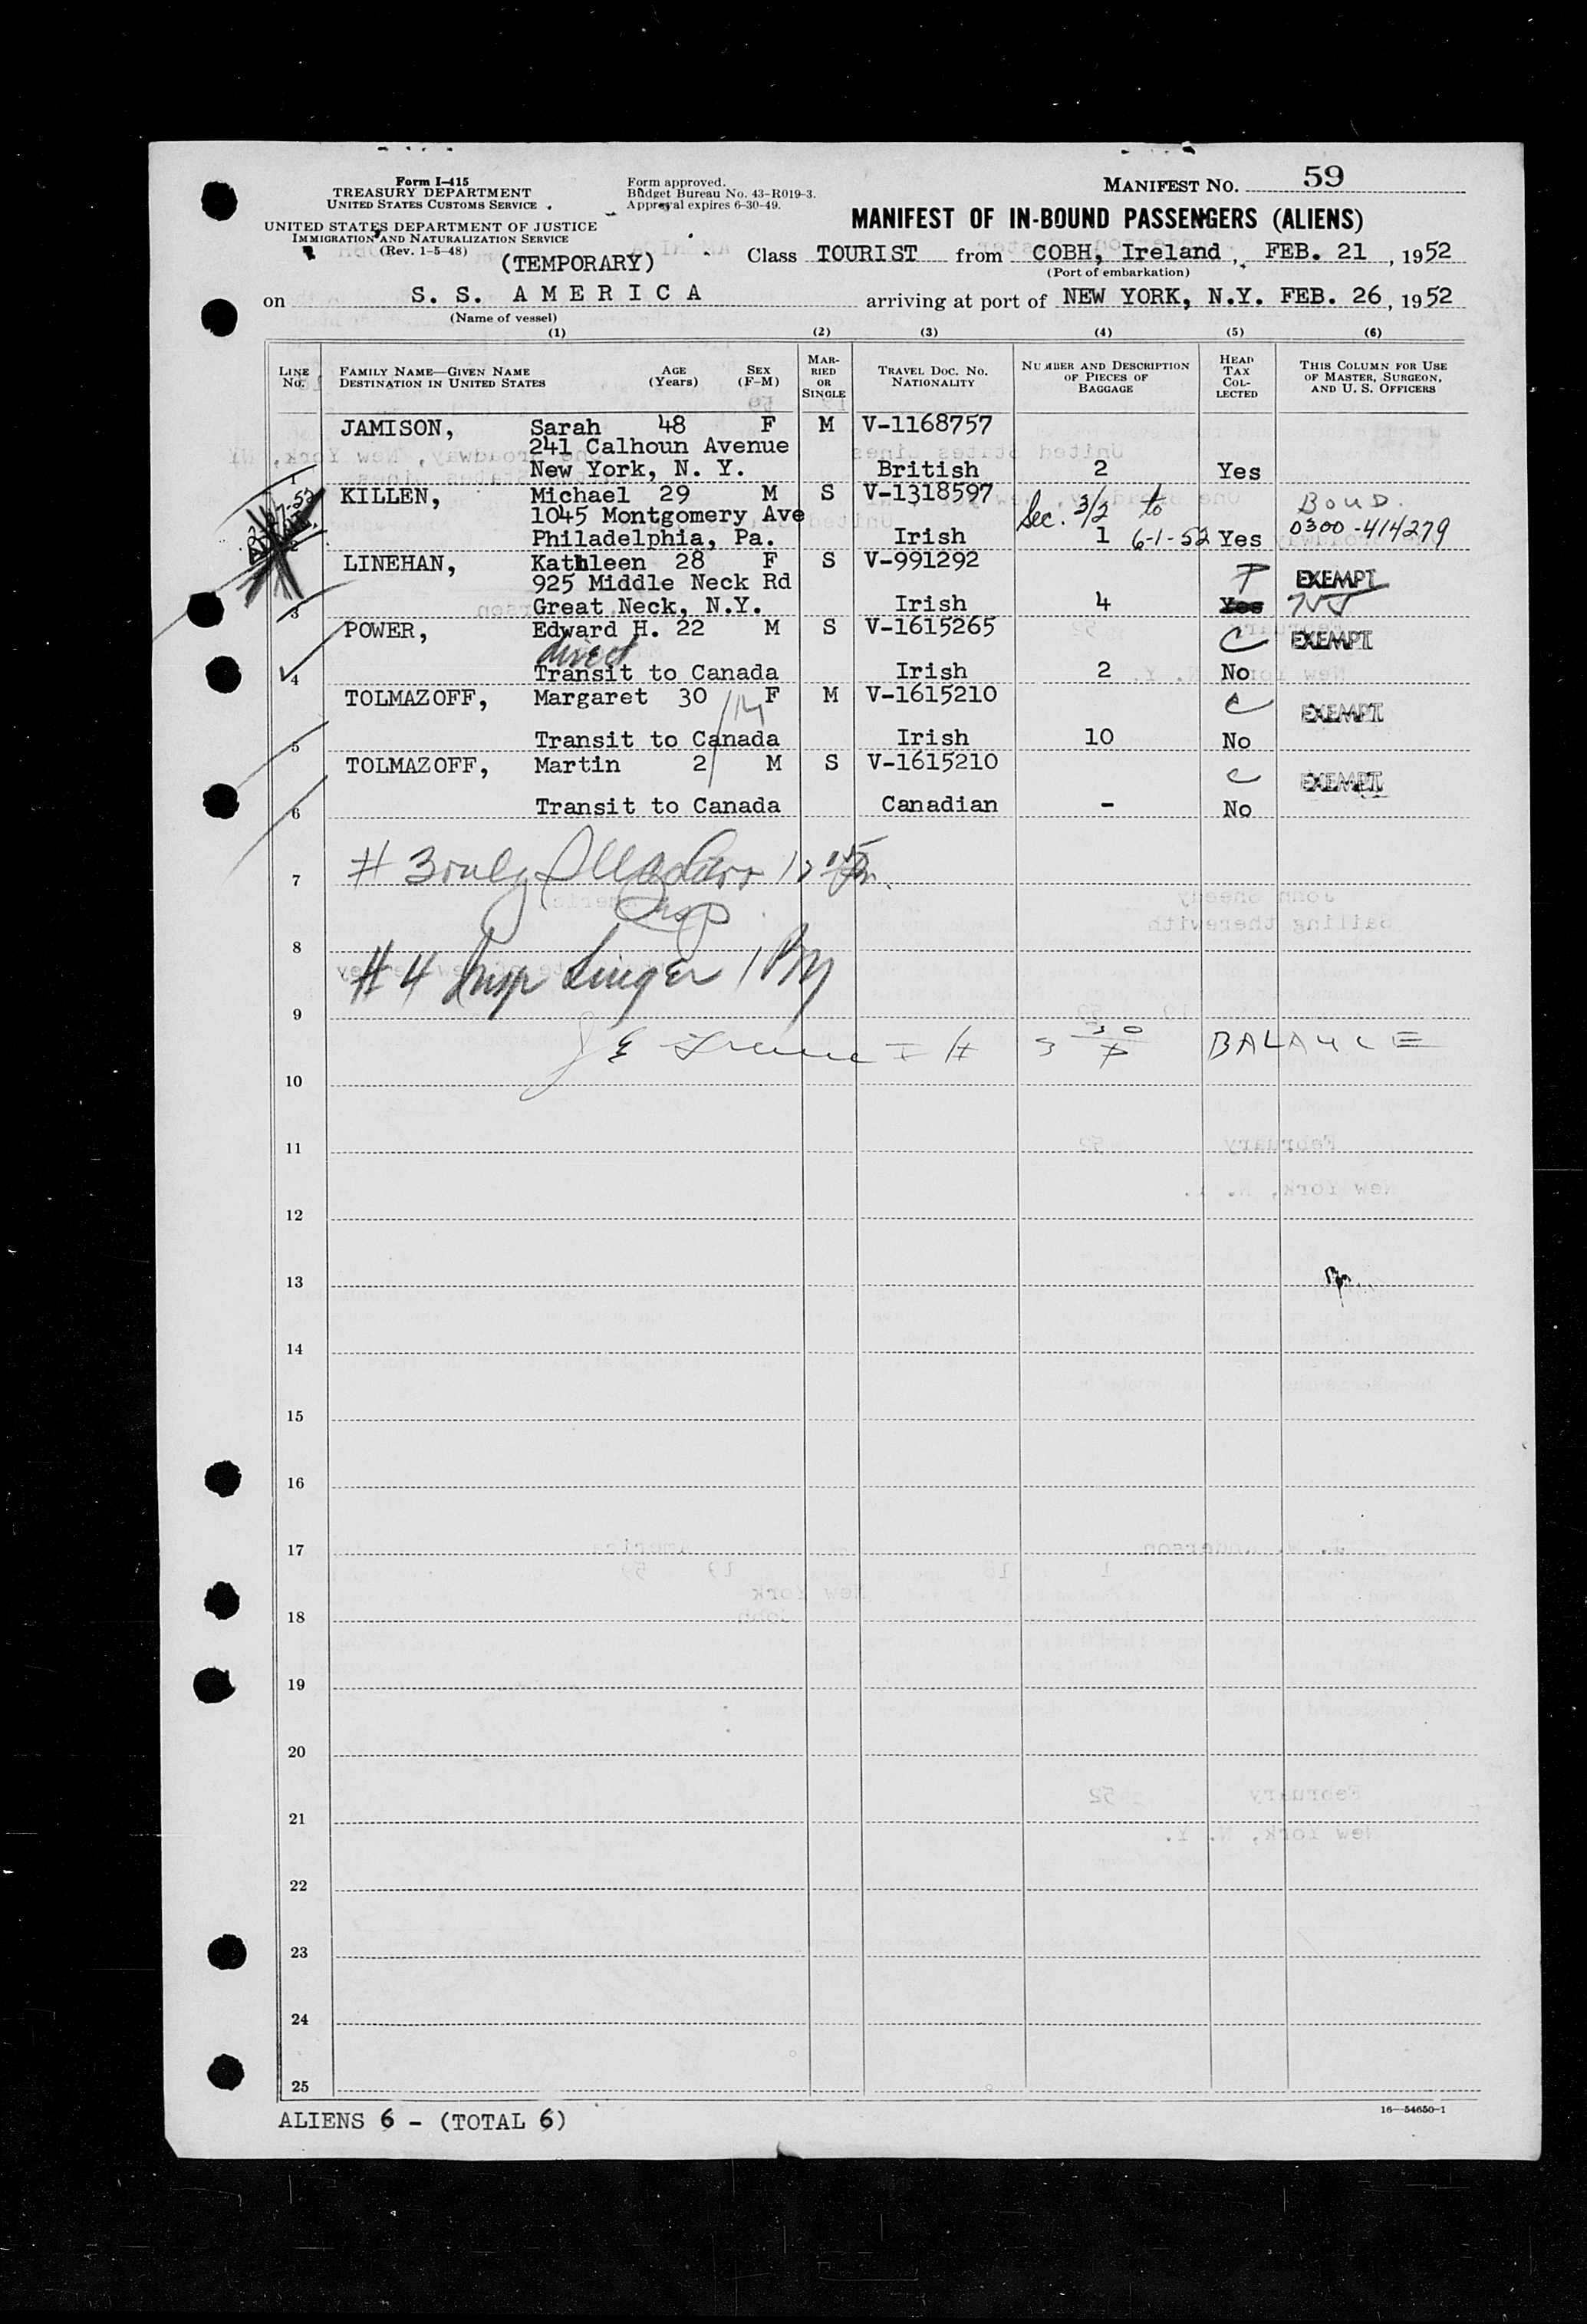 Form I-415
TREASURY DEPARTMENT
UNITED STATES CUSTOMS SERVICE
UNITED STATES DEPARTMENT OF JUSTICE
IMMIGRATION AND NATURALIZATION SERVICE
(Rev. 1-5-48)
(TEMPORARY)
Form approved.
Budget Bureau No. 43-R019-3.
Approval expires 6-30-49.
MANIFEST NO. 59
MANIFEST OF IN-BOUND PASSENGERS (ALIENS)
Class TOURIST from COBH, Ireland, FEB. 21, 1952
(Port of embarkation)
on S. S. AMERICA arriving at port of NEW YORK, N.Y. FEB. 26, 1952
(Name of vessel)
(1) (2) (3) (4) (5) (6)
LINE No. FAMILY NAME—GIVEN NAME DESTINATION IN UNITED STATES AGE (Years) SEX (F-M) MARRIED OR SINGLE TRAVEL DOC. NO. NATIONALITY NUMBER AND DESCRIPTION OF PIECES OF BAGGAGE HEAD TAX COLLECTED THIS COLUMN FOR USE OF MASTER, SURGEON, AND U. S. OFFICERS
JAMISON, Sarah 48 F M V-1168757
241 Calhoun Avenue
1 New York, N. Y. British 2 Yes
KILLEN, Michael 29 M S V-1318597 Bond.
1045 Montgomery Ave Sec. 3/2 to 0300-414279
2 Philadelphia, Pa. Irish 1 6-1-52 Yes
LINEHAN, Kathleen 28 F S V-991292
925 Middle Neck Rd EXEMPT
3 Great Neck, N.Y. Irish 4 Yes
POWER, Edward H. 22 M S V-1615265 C EXEMPT
direct
4 Transit to Canada Irish 2 No
TOLMAZOFF, Margaret 30 F M V-1615210 C EXEMPT
5 Transit to Canada Irish 10 No
TOLMAZOFF, Martin 2 M S V-1615210 C EXEMPT
6 Transit to Canada Canadian - No
# 3 only
7
Insp
8
# 4 Insp Singer 1 PM
9
BALANCE
10
11
12
13
14
15
16
17
18
19
20
21
22
23
24
25
ALIENS 6 - (TOTAL 6)
16—54650-1